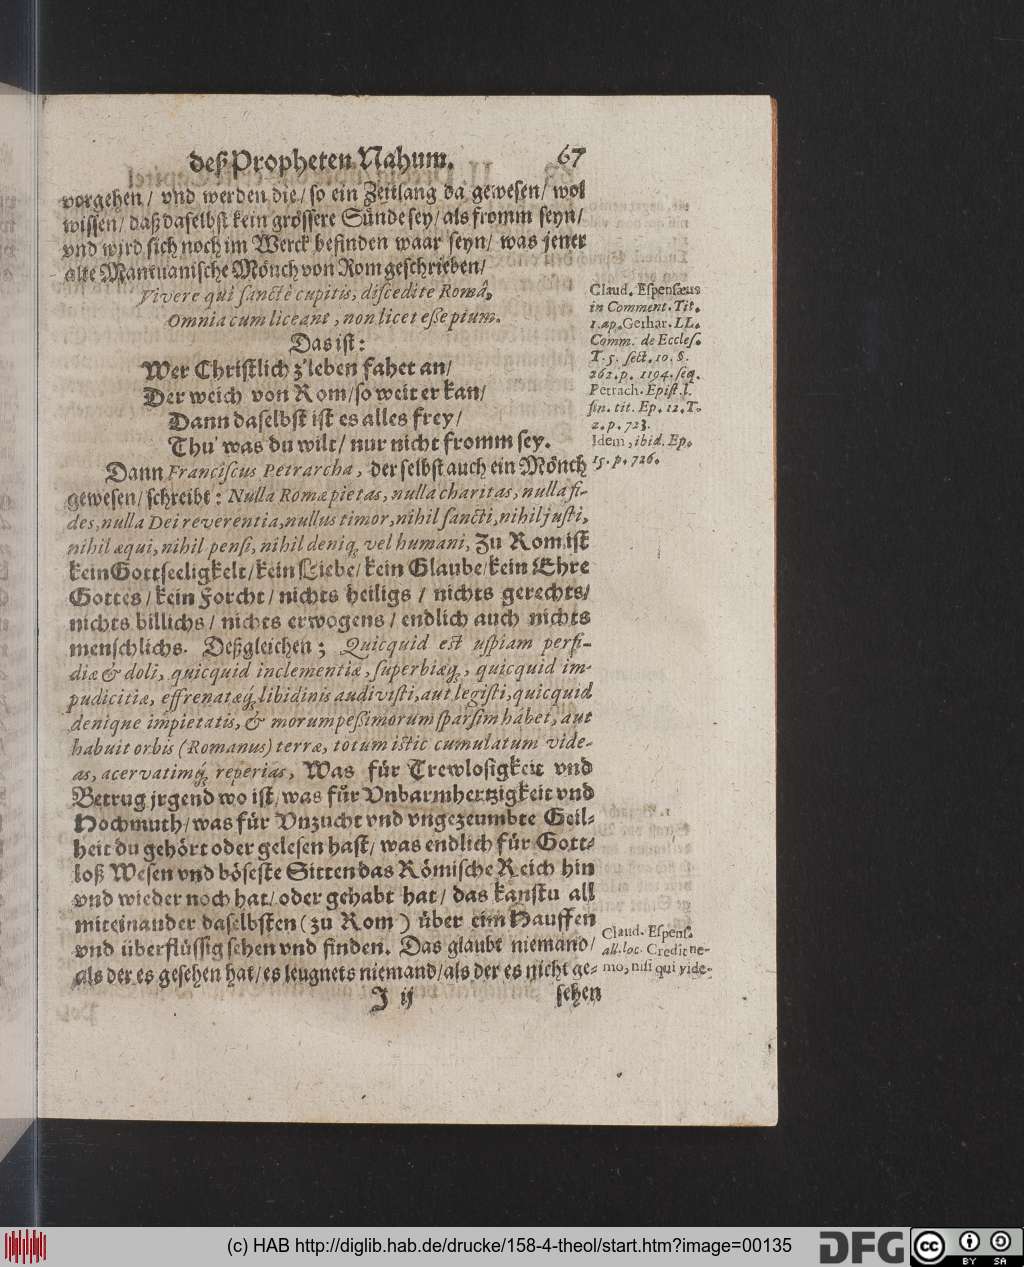 deß Propheten Nahum. 67
vorgehen / vnd werden die / so ein Zeitlang da gewesen / wol
wissen / daß daselbst kein grössere Sünde sey / als fromm seyn /
vnd wird sich noch im Werck befinden waar seyn / was jener
alte Mantuanische Mönch von Rom geschrieben /
Vivere qui sanctè cupitis, discedite Româ,
Omnia cum liceant, non licet esse pium.
Das ist:
Wer Christlich z'leben fahet an /
Der weich von Rom / so weit er kan /
Dann daselbst ist es alles frey /
Thu' was du wilt / nur nicht fromm sey.
Dann Franciscus Petrarcha, der selbst auch ein Mönch
gewesen / schreibt: Nulla Romæ pietas, nulla charitas, nulla fi-
des, nulla Dei reverentia, nullus timor, nihil sancti, nihil justi,
nihil æqui, nihil pensi, nihil deniq; vel humani, Zu Rom ist
kein Gottseeligkeit / kein Liebe / kein Glaube / kein Ehre
Gottes / kein Forcht / nichts heiligs / nichts gerechts /
nichts billichs / nichts erwogens / endlich auch nichts
menschlichs. Deßgleichen; Quicquid est uspiam perfi-
diæ & doli, quicquid inclementiæ, superbiæq;, quicquid im-
pudicitiæ, effrenatæq; libidinis audivisti, aut legisti, quicquid
denique impietatis, & morum pessimorum sparsim habet, aut
habuit orbis (Romanus) terræ, totum istic cumulatum vide-
as, acervatimq; reperias, Was für Trewlosigkeit vnd
Betrug jrgend wo ist / was für Vnbarmhertzigkeit vnd
Hochmuth / was für Vnzucht vnd vngezeumbte Geil-
heit du gehört oder gelesen hast / was endlich für Gott-
loß Wesen vnd böseste Sitten das Römische Reich hin
vnd wieder noch hat / oder gehabt hat / das kanstu all
miteinander daselbsten (zu Rom) über eim Hauffen
vnd überflüssig sehen vnd finden. Das glaubt niemand /
als der es gesehen hat / es leugnets niemand / als der es nicht ge-
J ij sehen
Claud. Espensæus
in Comment. Tit.
1. ap. Gerhar. LL.
Comm. de Eccles.
T. 5. sect. 10. §.
262. p. 1194. seq.
Petrach. Epist. l.
sin. tit. Ep. 12. T.
2. p. 723.
Idem, ibid. Ep.
15. p. 726.
Claud. Espens.
all. loc. Credit ne-
mo, nisi qui vide-
(c) HAB http://diglib.hab.de/drucke/158-4-theol/start.htm?image=00135
DFG
cc BY SA